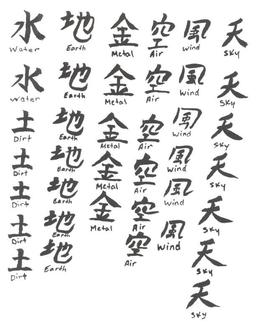 水 地 金 空 風 天
Water Earth Metal Air Wind Sky
水 地 金 空 風 天
Water Earth Metal Air Wind Sky
土 地 金 空 風 天
Dirt Earth Metal Air Wind Sky
土 地 金 空 風 天
Dirt Earth Metal Air Sky
土 地 金 空 風 天
Dirt Earth Metal Air Wind Sky
土 地 空 風 天
Dirt Earth Air Wind Sky
天
Sky